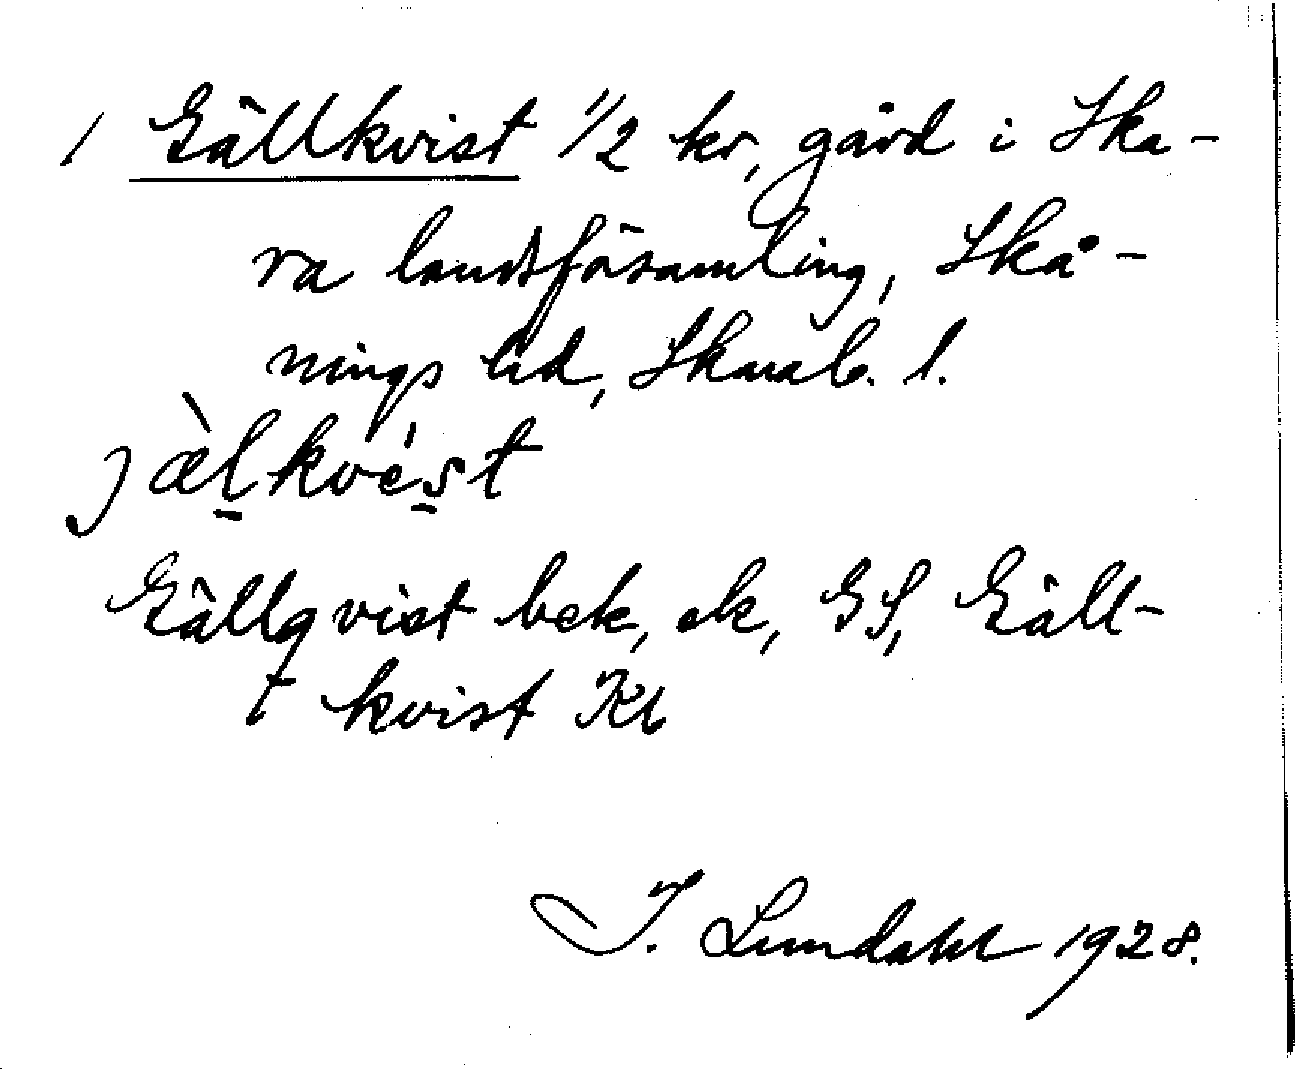 / Gällkvist 1/2 kr, gård i Ska-
ra landsförsamling, Skå-
nings hd, Skarab. l.
jæ̀l̠kvés̠t
Gällqvist bek, ek, GS, Gäll-
t kvist Kb
I. Lundahl 1928.